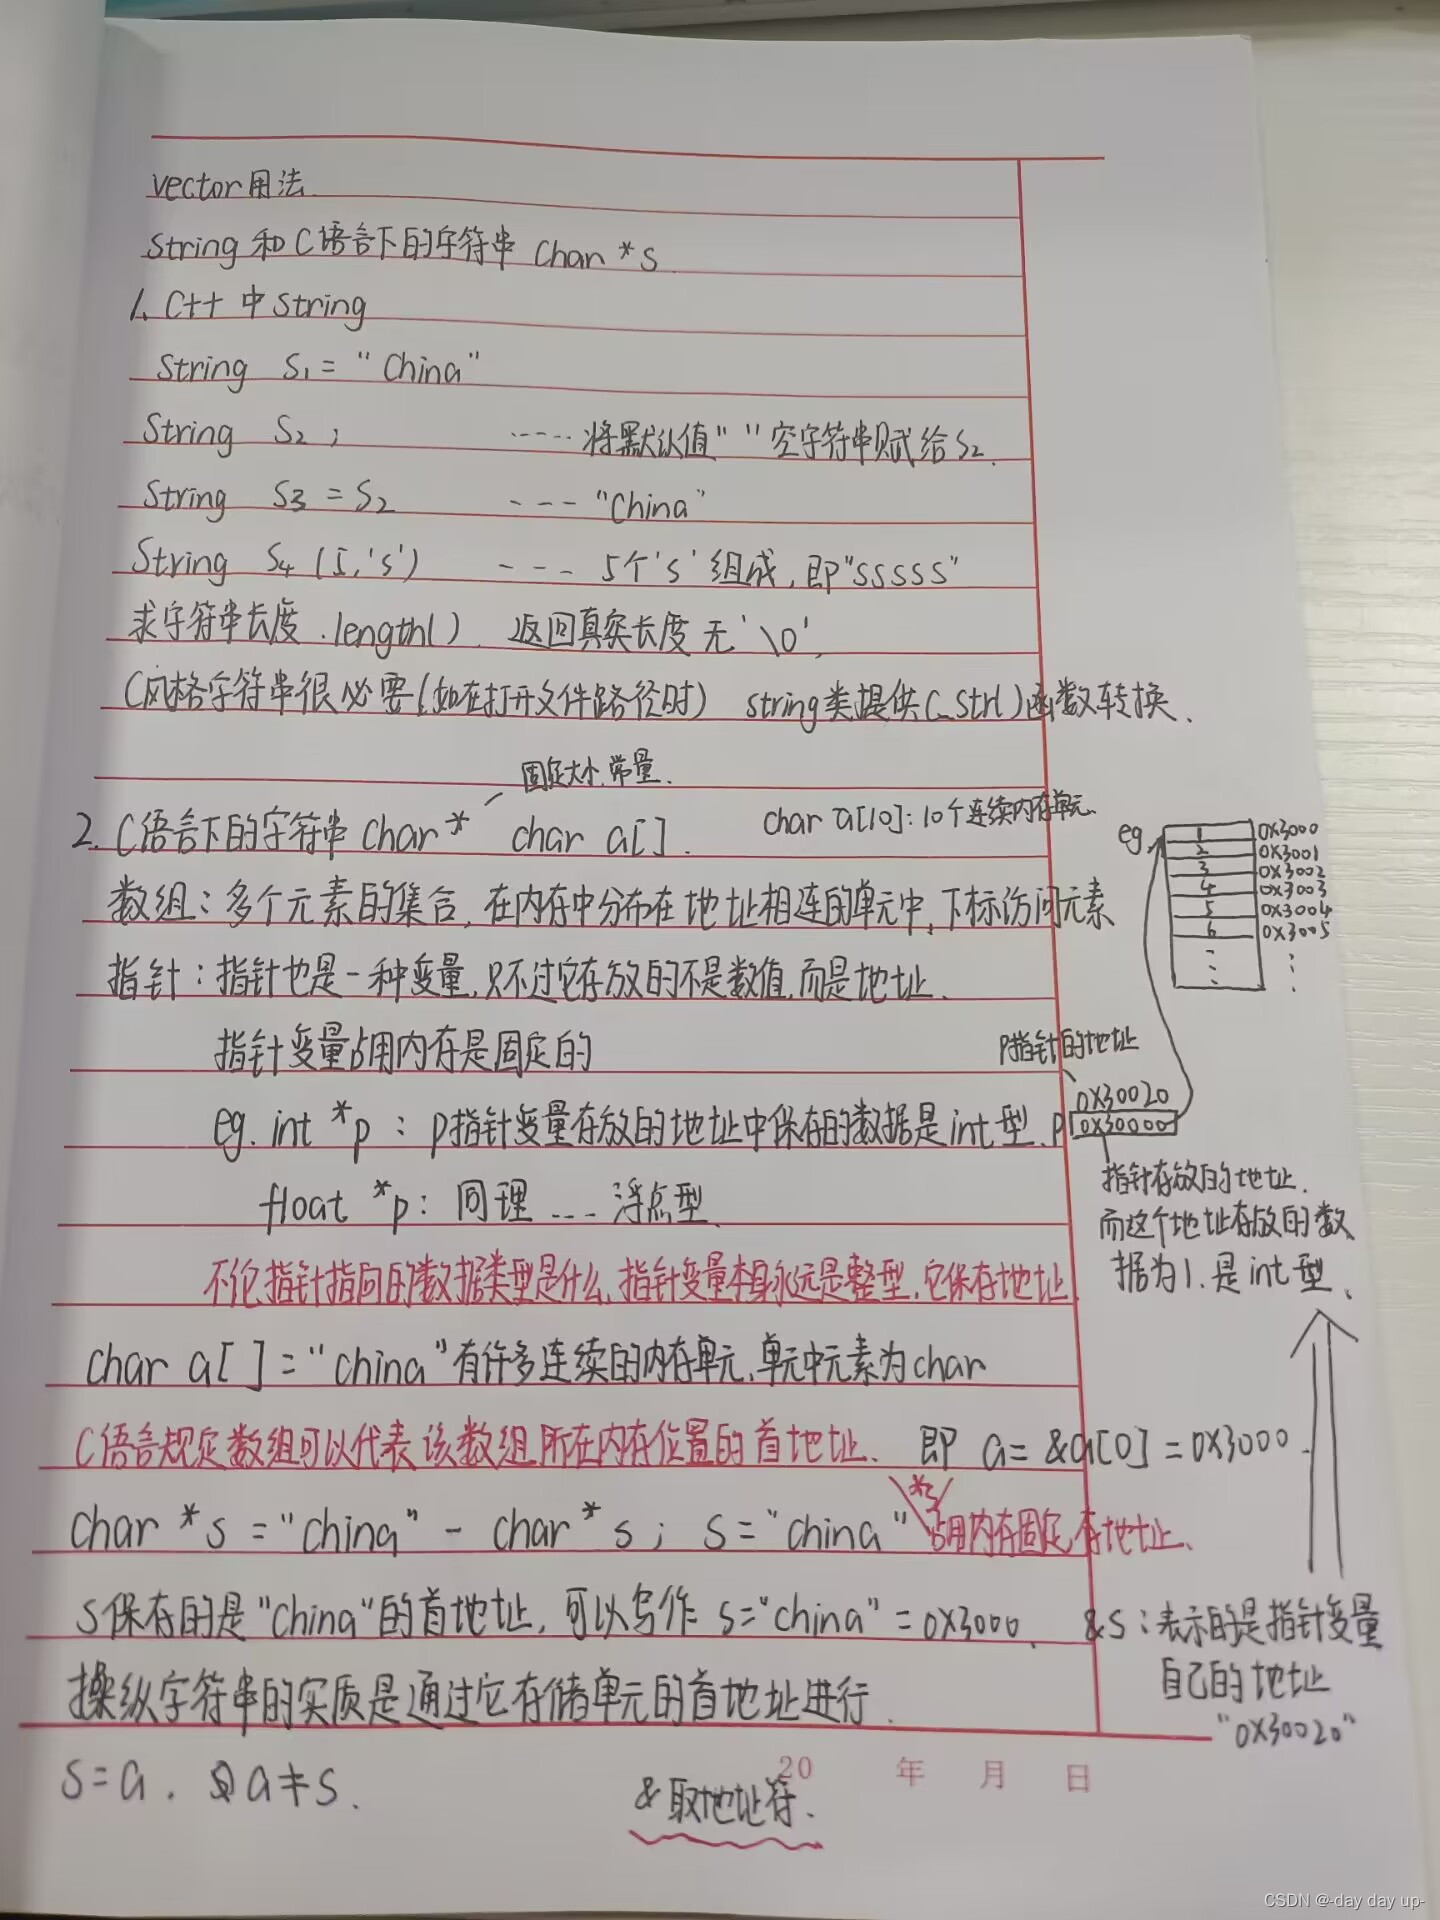 vector用法
String 和 C语言下的字符串 Char *s
1. C++ 中 String
String S₁ = "China"
String S₂ ; ······ 将默认值" "空字符串赋给S₂.
String S₃ = S₂ --- "China"
String S₄ (5,'s') --- 5个's'组成,即"SSSSS"
求字符串长度 .length() 返回真实长度 无'\0',
C风格字符串很必要(如在打开文件路径时) string类提供C_Str()函数转换、
固定大小.常量.
2. C语言下的字符串 char* char a[].
char a[10]: 10个连续内存单元.
数组: 多个元素的集合, 在内存中分布在地址相连的单元中, 下标访问元素
指针: 指针也是一种变量, 只不过它存放的不是数值, 而是地址.
指针变量占用内存是固定的
eg. int *p : p指针变量存放的地址中保存的数据是int型.
float *p: 同理 --- 浮点型.
不论指针指向的数据类型是什么, 指针变量本身永远是整型, 它保存地址
char a[ ] = "china" 有许多连续的内存单元, 单元中元素为char
C语言规定数组可以代表该数组所在内存位置的首地址. 即 a= &a[0] = 0X3000.
*s
char *s = "china" - char *s ; s="china" 占用内存固定,有地址.
S保存的是"China"的首地址, 可以写作 s="china" = 0X3000.
操纵字符串的实质是通过它存储单元的首地址进行.
s=a. a≠s.
&取地址符.
eg.
1 0X3000
2 0X3001
3 0X3002
4 0X3003
5 0X3004
6 0X3005
P指针的地址
0X30020
P 0X30000
指针存放的地址.
而这个地址存放的数
据为1.是int型.
&S : 表示的是指针变量
自己的地址
"0X30020"
20 年 月 日
CSDN @-day day up-